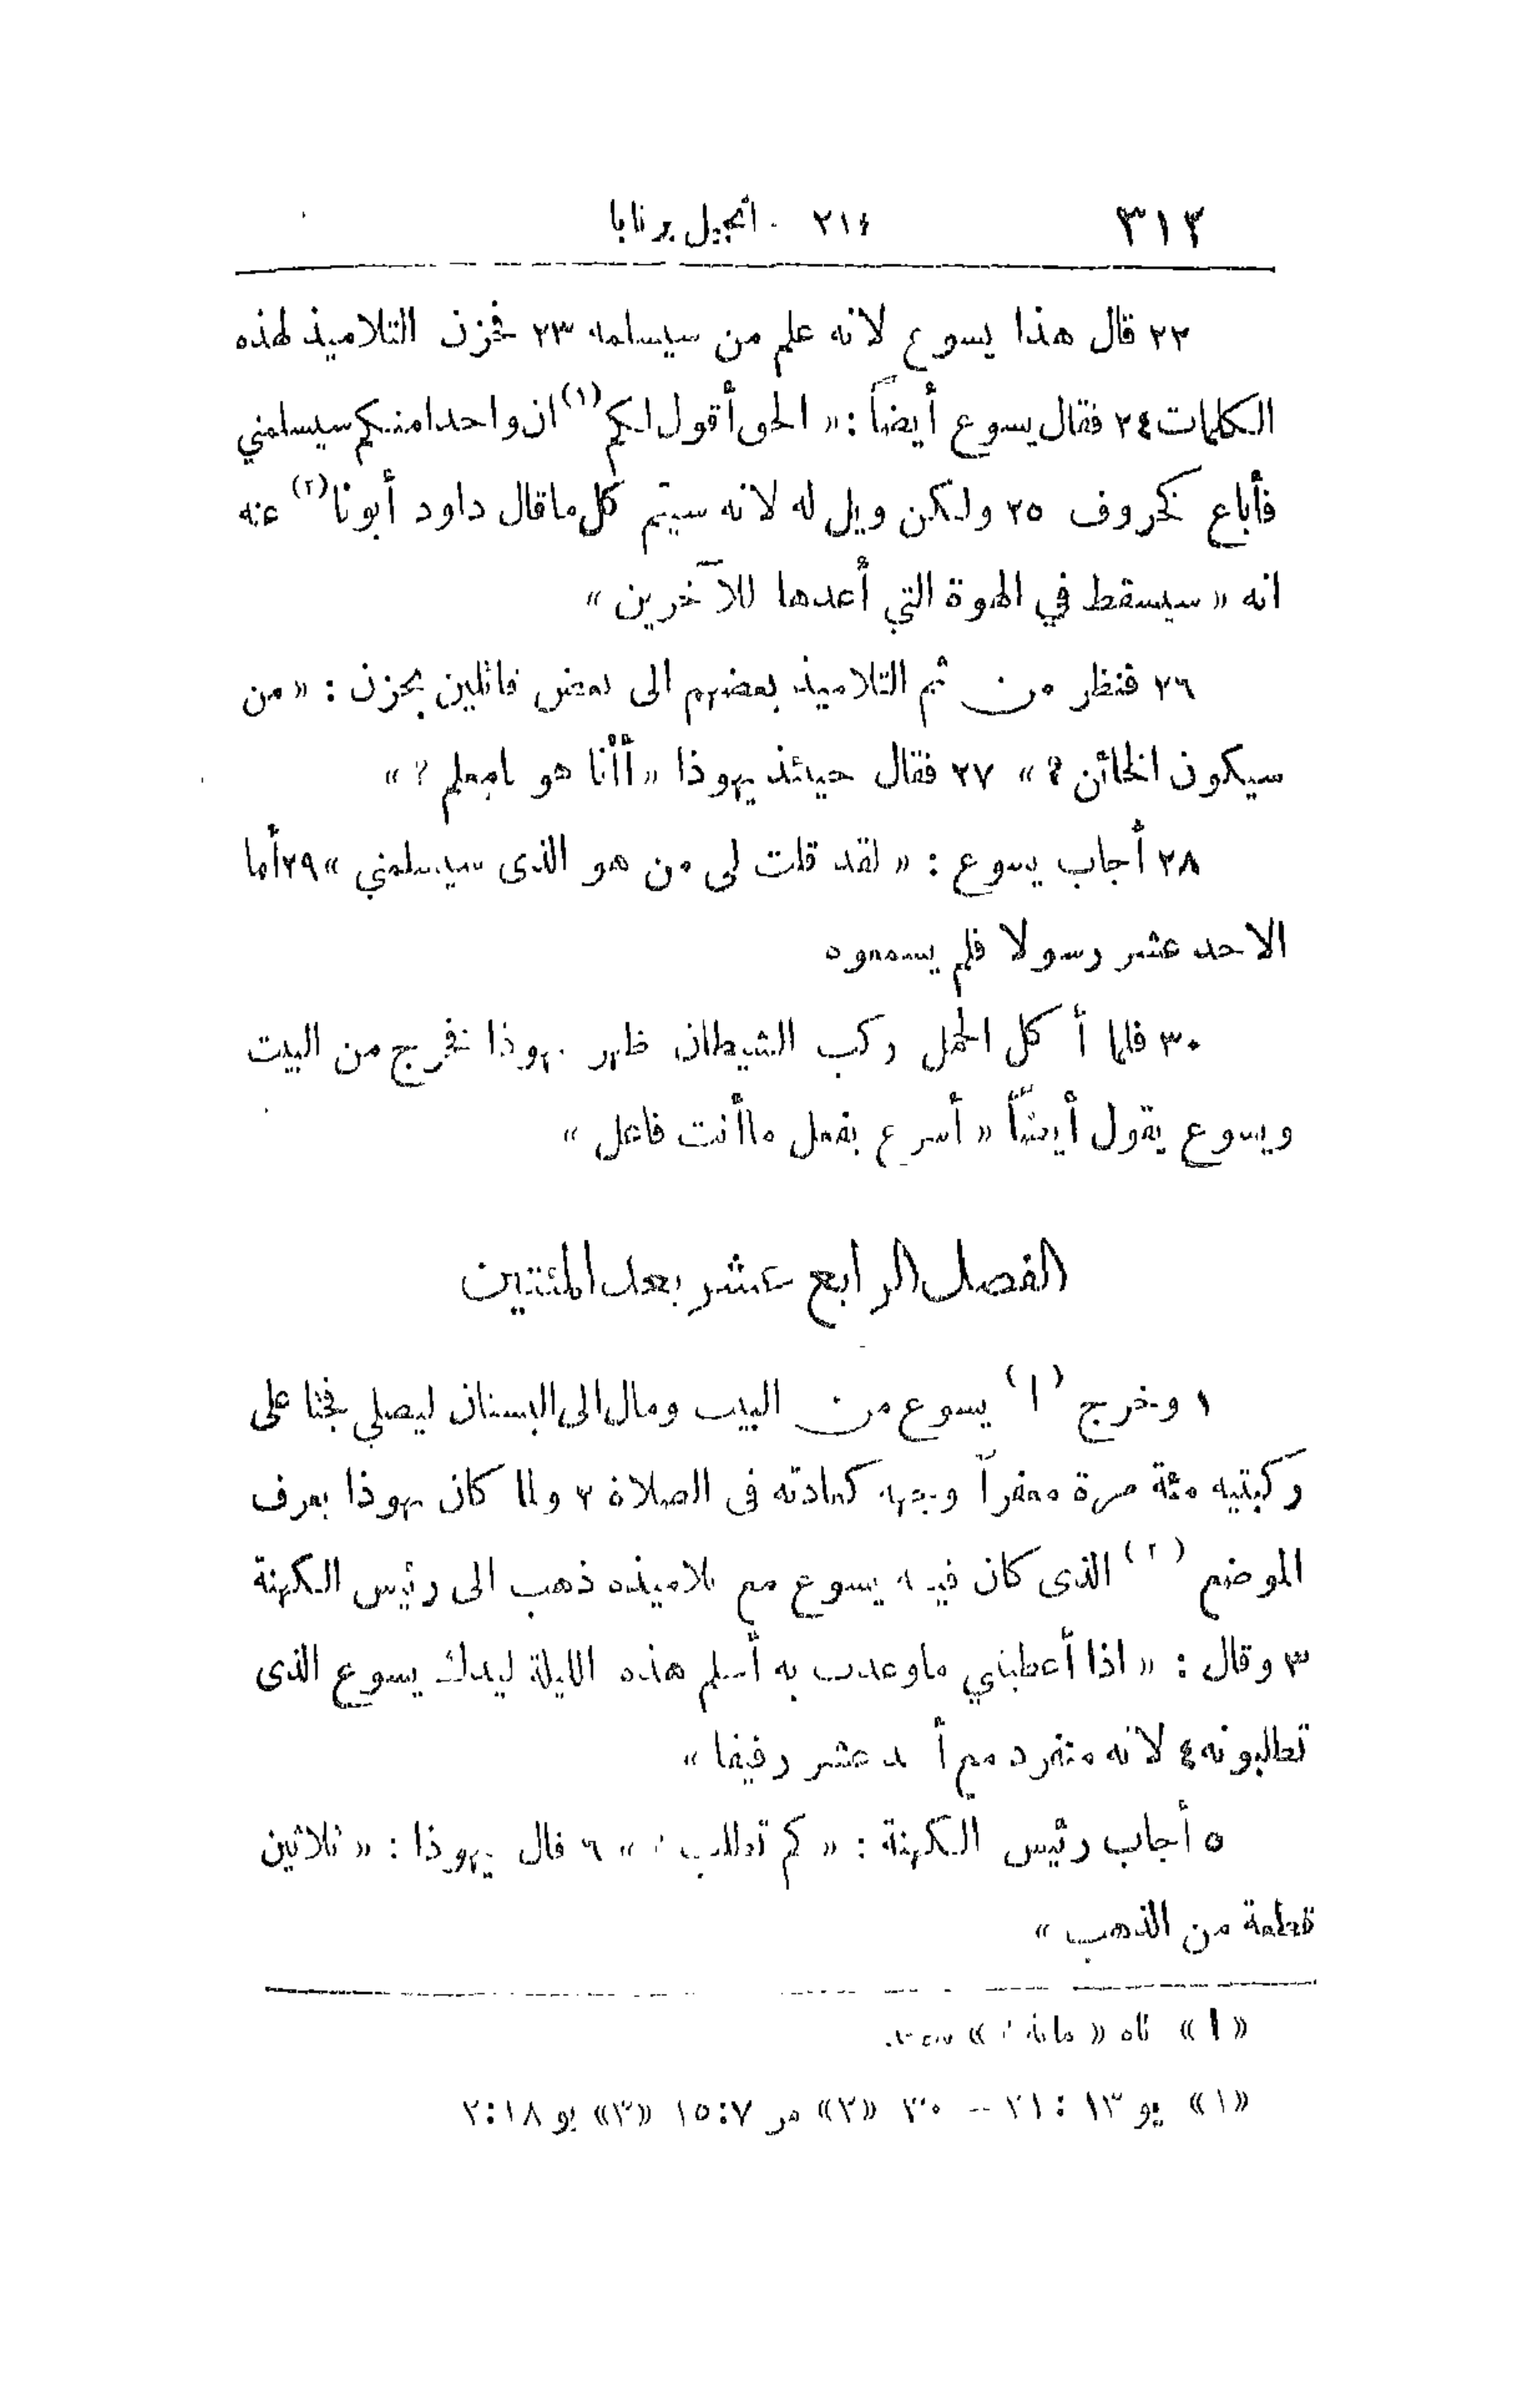 ٣١٢ ٢١٤ . انجيل برنابا
٢٢ قال هذا يسوع لانه علم من سيسلمه ٢٣ فحزن التلاميذ لهذه
الكلمات ٢٤ فقال يسوع أيضاً : « الحق أقول لكم (١) ان واحدا منكم سيسلمني
فأباع كخروف ٢٥ ولكن ويل له لانه سيتم كل ما قال داود أبونا (٢) عنه
انه « سيسقط في الهوة التي أعدها للآخرين »
٢٦ فنظر من ثم التلاميذ بعضهم الى بعض قائلين بحزن : « من
سيكون الخائن ؟ » ٢٧ فقال حينئذ يهوذا « أأنا هو يامعلم ؟ »
٢٨ أجاب يسوع : « لقد قلت لى من هو الذى سيسلمني » ٢٩ أما
الاحد عشر رسولا فلم يسمعوه
٣٠ فلما أكل الحمل ركب الشيطان ظهر يهوذا فخرج من البيت
ويسوع يقول أيضاً « أسرع بفعل ماأنت فاعل »
الفصل الرابع عشر بعد المئتين
١ وخرج (١) يسوع من البيت ومال الى البستان ليصلي فجثا على
ركبتيه مئة مرة معفراً وجهه كعادته فى الصلاة ٢ ولما كان يهوذا يعرف
الموضع (٢) الذى كان فيه يسوع مع تلاميذه ذهب الى رئيس الكهنة
٣ وقال : « اذا أعطيتني ماوعدت به أسلم هذه الليلة ليدك يسوع الذى
تطلبونه ٤ لانه منفرد مع أحد عشر رفيقا »
٥ أجاب رئيس الكهنة : « كم تطلب ؟ » ٦ قال يهوذا : « ثلاثين
قطعة من الذهب »
« ١ »
«١» يو ١٣ : ٢١ – ٣٠ «٢» مز ٧:١٥ «٣» يو ١٨:٢